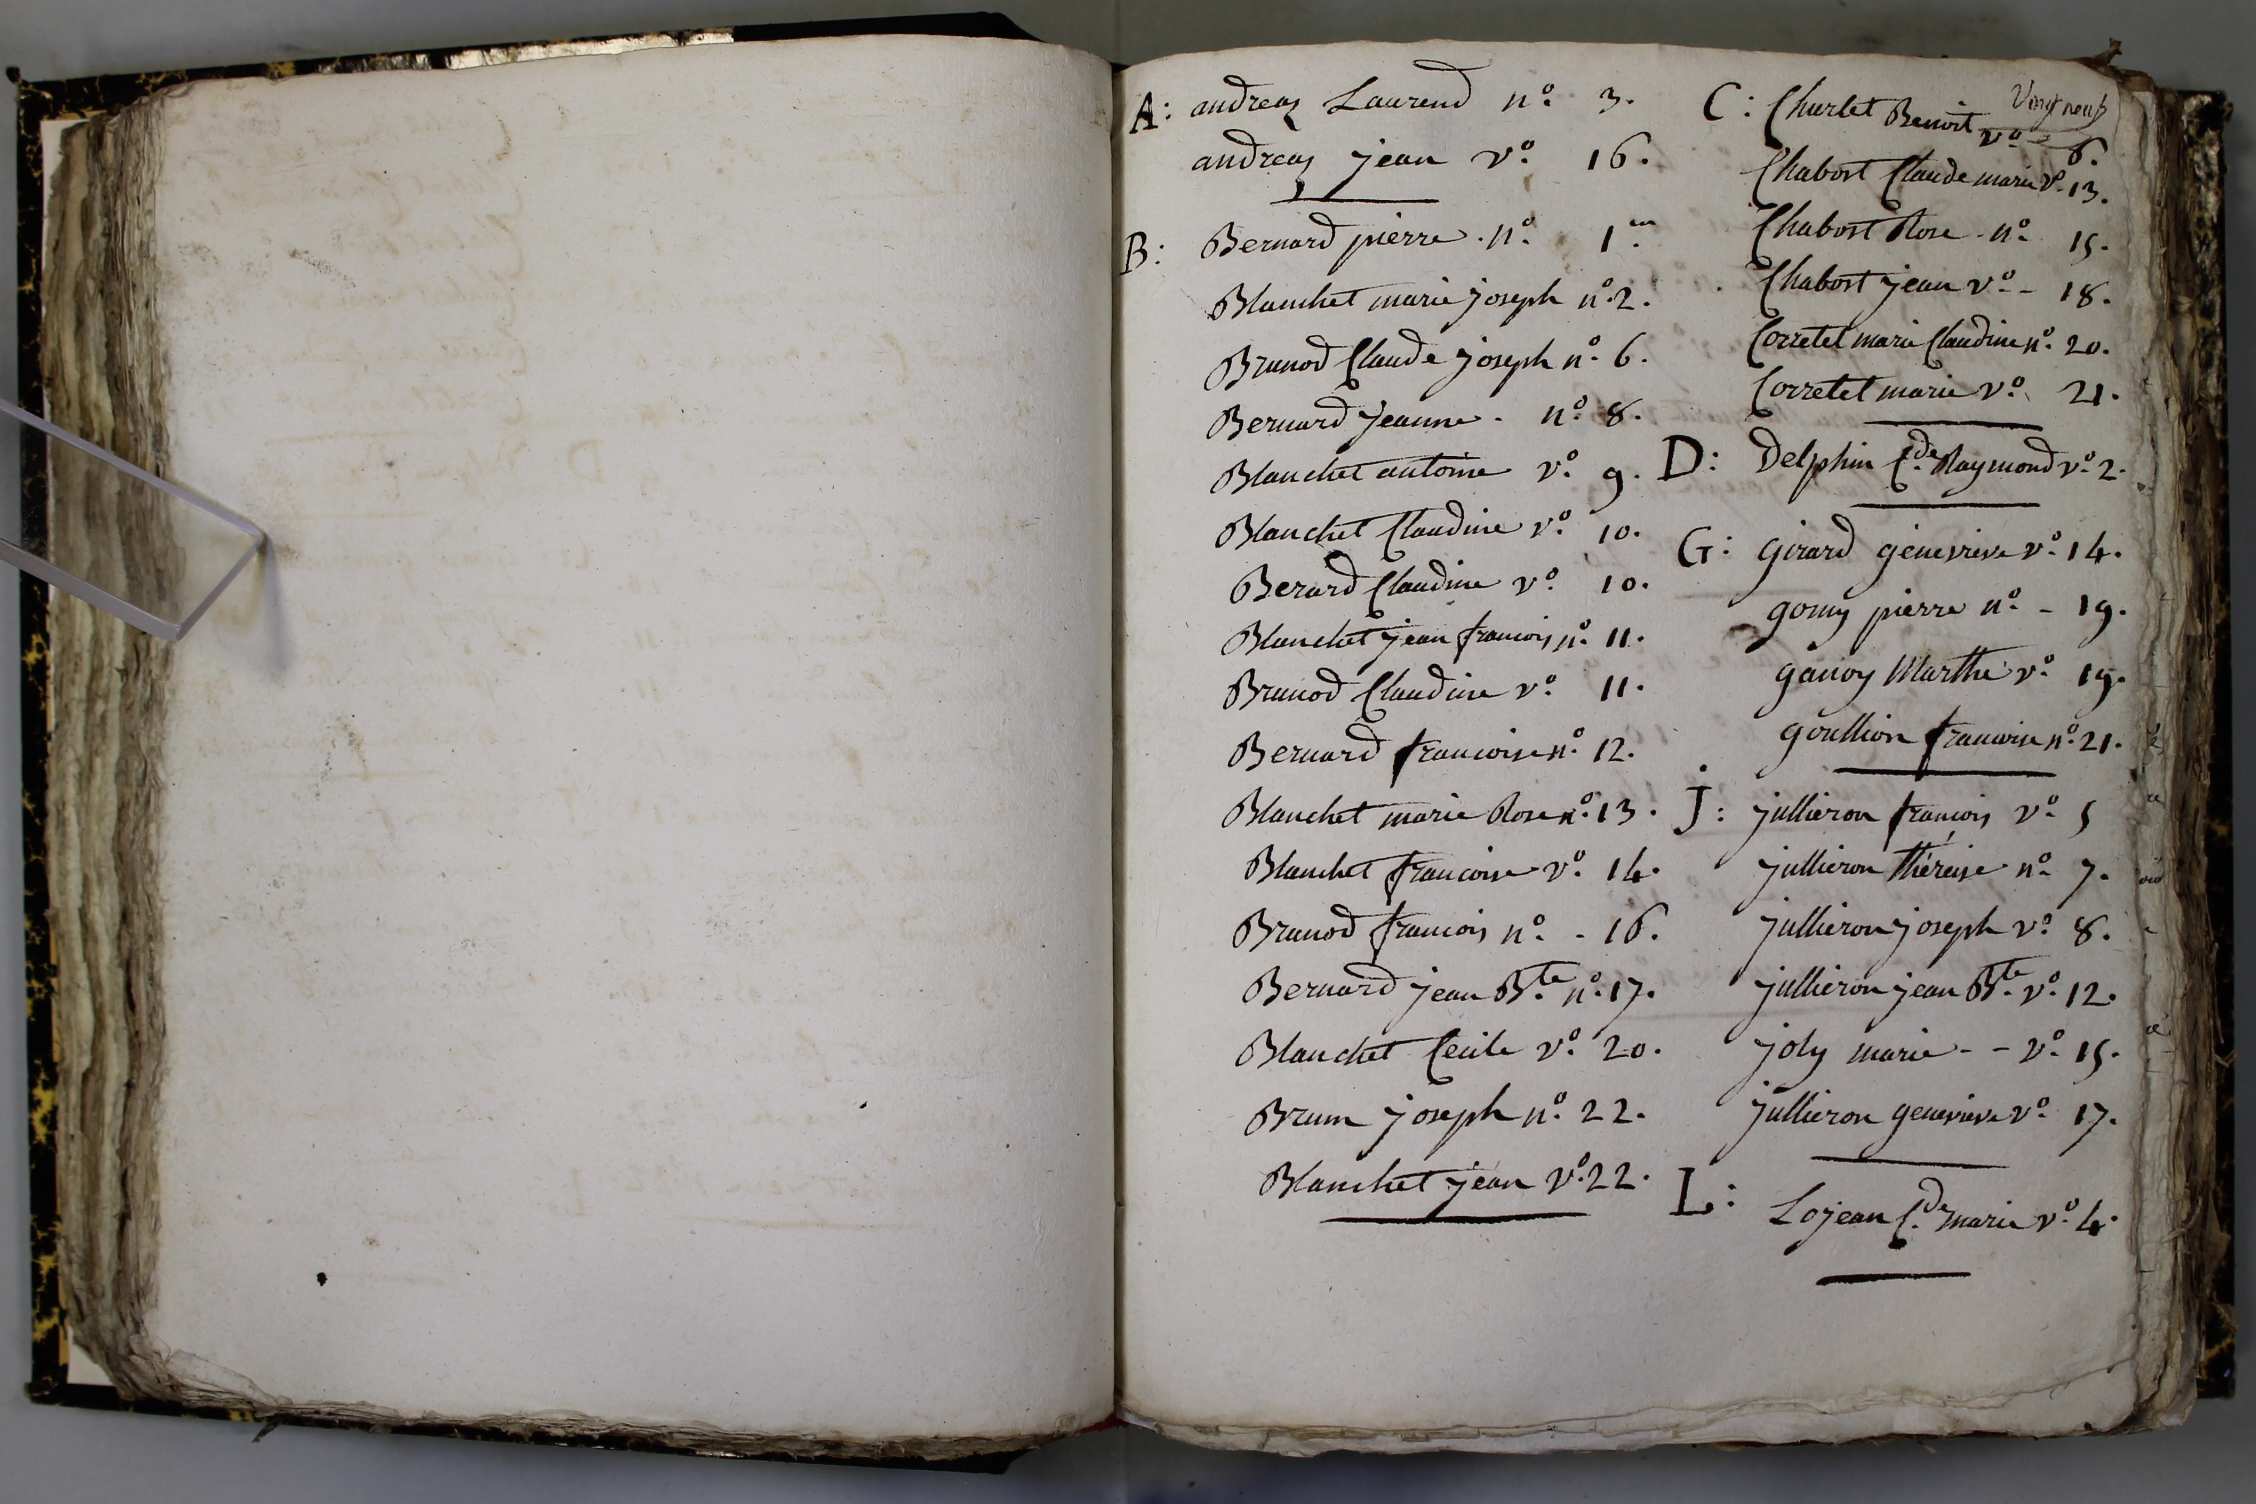 A: andreas Laurend n.o 3.
andreas jean v.o 16.
B: Bernard pierre . n.o 1.er
Blanchet marie joseph n.o 2.
Brunod Claude joseph n.o 6.
Bernard jeanne . n.o 8.
Blanchet antoine v.o 9.
Blanchet Claudine v.o 10.
Berard Claudine v.o 10.
Blanchet jean francois n.o 11.
Brunod Claudine v.o 11.
Bernard francoise n.o 12.
Blanchet marie Rose n.o 13.
Blanchet francoise v.o 14.
Brunod francois n.o - 16.
Bernard jean B.te n.o 17.
Blanchet Cecile v.o 20.
Brum joseph n.o 22.
Blanchet jean v.o 22.
Vingt neuf
C: Charlet Benoit v.o 6.
Chabort Claude marie v.o 13.
Chabort Rose . n.o 15.
Chabort jean v.o - 18.
Corretet marie Claudine n.o 20.
Corretet marie v.o 21.
D: Delphin C.de Raymond v.o 2.
G: girard genevieve v.o 14.
gomy pierre n.o - 19.
ganoy Marthe v.o 19.
goullion francoise n.o 21.
J: jullieron francois v.o 5
jullieron thérèse n.o 7.
jullieron joseph v.o 8.
jullieron jean B.te v.o 12.
joly marie - - v.o 15.
jullieron genevieve v.o 17.
L: Lojean C.de marie v.o 4.